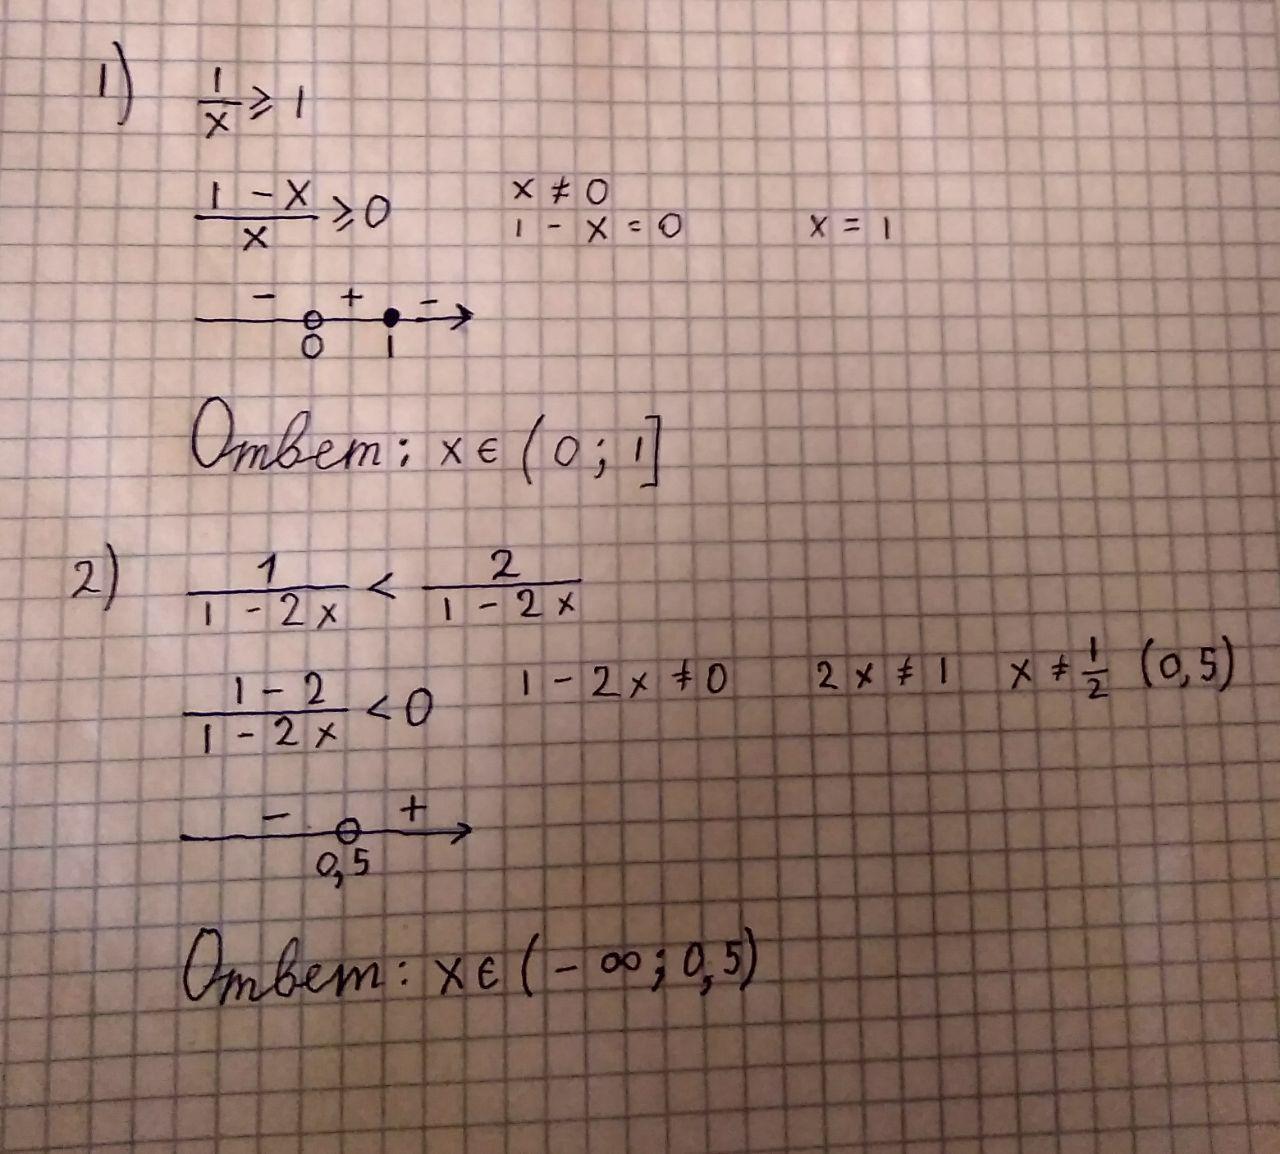 1) 1/x ⩾ 1
(1 - x)/x ⩾ 0 x ≠ 0
1 - x = 0 x = 1
- + -
0 1
Ответ: x ∈ (0; 1]
2) 1/(1 - 2x) < 2/(1 - 2x)
(1 - 2)/(1 - 2x) < 0 1 - 2x ≠ 0 2x ≠ 1 x ≠ 1/2 (0,5)
- +
0,5
Ответ: x ∈ (- ∞; 0,5)